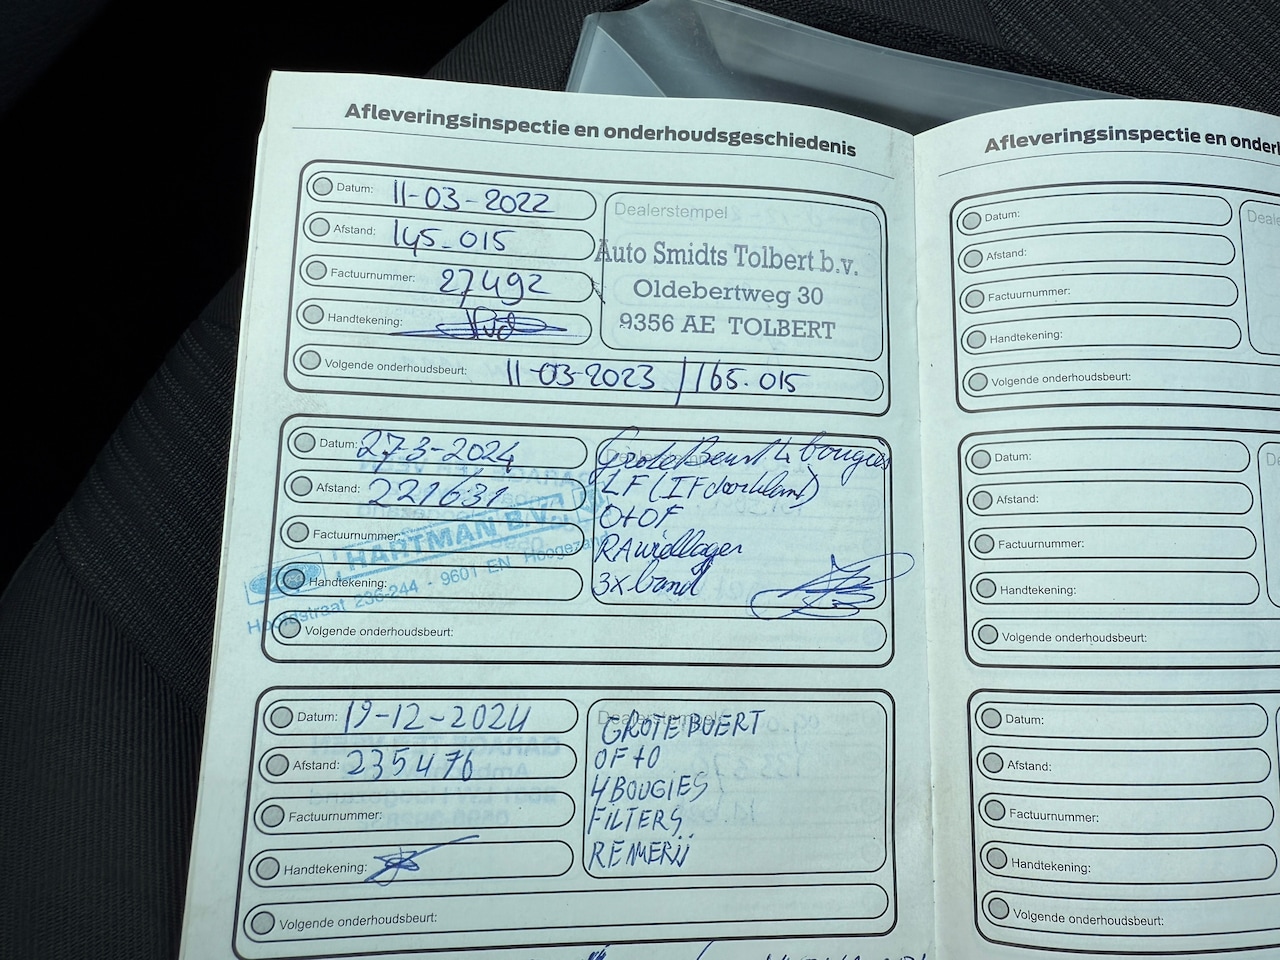 Afleveringsinspectie en onderhoudsgeschiedenis
Datum: 11-03-2022
Afstand: 145.015
Factuurnummer: 27492
Handtekening:
Dealerstempel
Auto Smidts Tolbert b.v.
Oldebertweg 30
9356 AE TOLBERT
Volgende onderhoudsbeurt: 11-03-2023 / 165.015
Datum: 27-3-2024
Afstand: 221631
Factuurnummer:
Handtekening:
HARTMAN B.V.
Hoofdstraat 236-244 - 9601 EN Hoogezand
Grote Beurt 4 bougies
LF (IF doorblazen)
O+OF
RA wiellager
3x band
Volgende onderhoudsbeurt:
Datum: 19-12-2024
Afstand: 235476
Factuurnummer:
Handtekening:
Dealerstempel
GROTE BUERT
OF+O
4 BOUGIES
FILTERS
REMMERIJ
Volgende onderhoudsbeurt:
Afleveringsinspectie en onder
Datum:
Afstand:
Factuurnummer:
Handtekening:
Volgende onderhoudsbeurt:
Datum:
Afstand:
Factuurnummer:
Handtekening:
Volgende onderhoudsbeurt:
Datum:
Afstand:
Factuurnummer:
Handtekening:
Volgende onderhoudsbeurt: